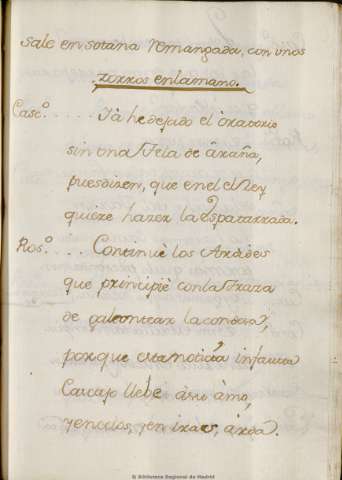 Sale en sotana remangada, con unos
zorros en la mano.
Casc.º ..... Ya he dejado el oratorio
sin una Tela de araña,
pues dizen, que en el el Rey
quiere hazer la espatarrada.
Ros.º .... Continuè los Ardides
que principiè con la Traza
de galeontear la condesa,
porque esta noticia infausta
Carcajo llebe à su àmo,
y en celos, y en iras, arda.
© Biblioteca Regional de Madrid